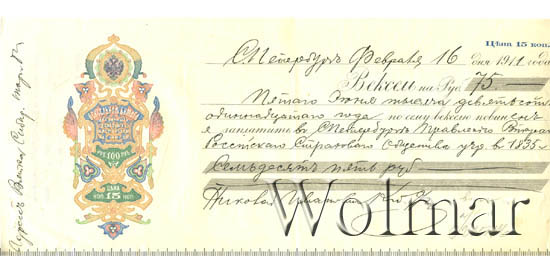 Цѣна 15 коп.
С.Петербургъ Февраля 16 дня 1911 года
Вексель на Руб. 75
Пятаго Іюня тысяча девятьсотъ
одиннадцатаго года по сему векселю повиненъ
я заплатить въ С.Петербургѣ Правленію
Россійскаго Страховаго Общества учр. въ 1835 г.
Семьдесятъ пять руб
Николай
Wolmar
РУБ 100 РУБ
ЦѢНА
КОП. 15 КОП.
Адресъ